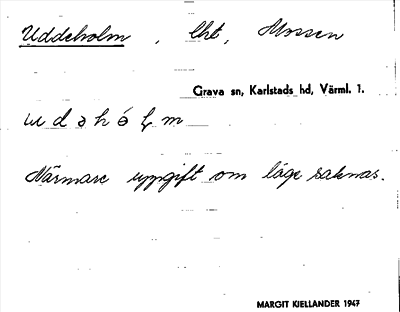 Uddeholm, lht, Mossen
Grava sn, Karlstads hd, Värml. 1.
Närmare uppgift om läge saknas.
MARGIT KJELLANDER 1947